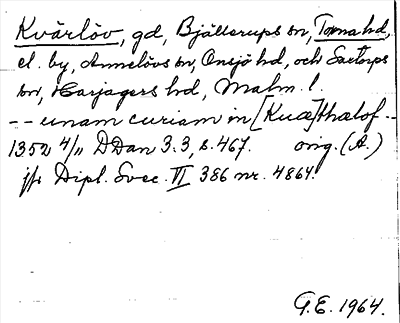 Kvärlöv, gd, Bjällerups sn, Torna hd,
el. by, Annelövs sn, Onsjö hd, och Saxtorps
sn, Harjagers hd, Malm. l.
-- unam curiam in [Kuæ]thælof --
1352 4/11 DDan 3:3, s. 467. orig. (A.)
jfr Dipl. Svec. VI 386 nr. 4864.
G.E. 1964.